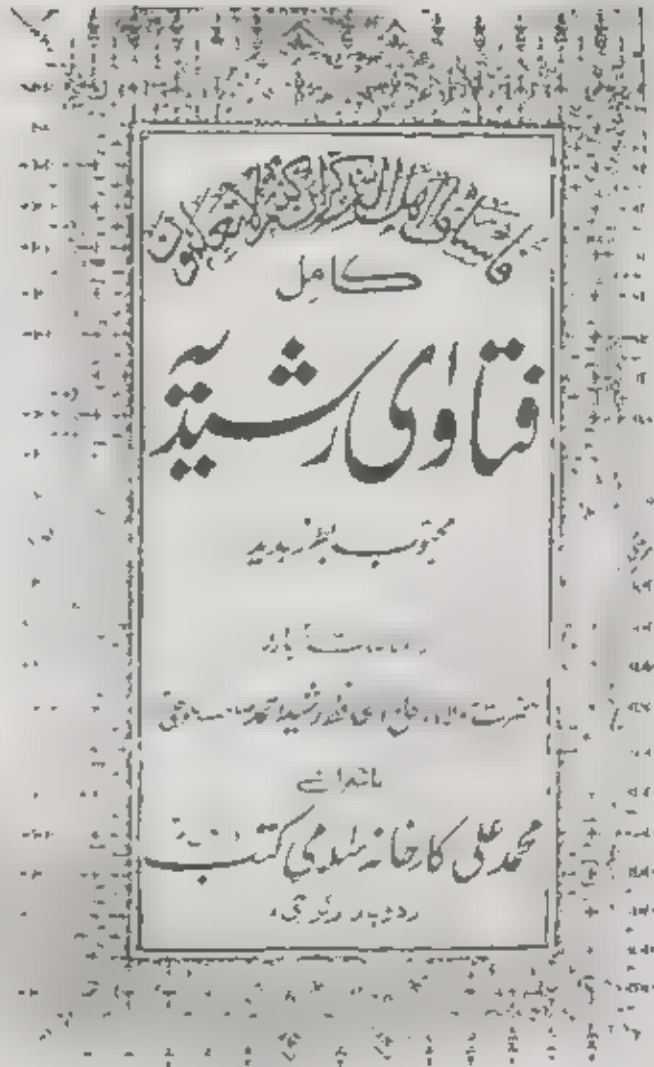 فاسئلوا اهل الذكر ان كنتم لا تعلمون
كامل
فتاوی رشیدیہ
مبوب بطرز جدید
حضرت مولانا رشید احمد صاحب
ناشران
محمد علی کارخانہ اسلامی کتب